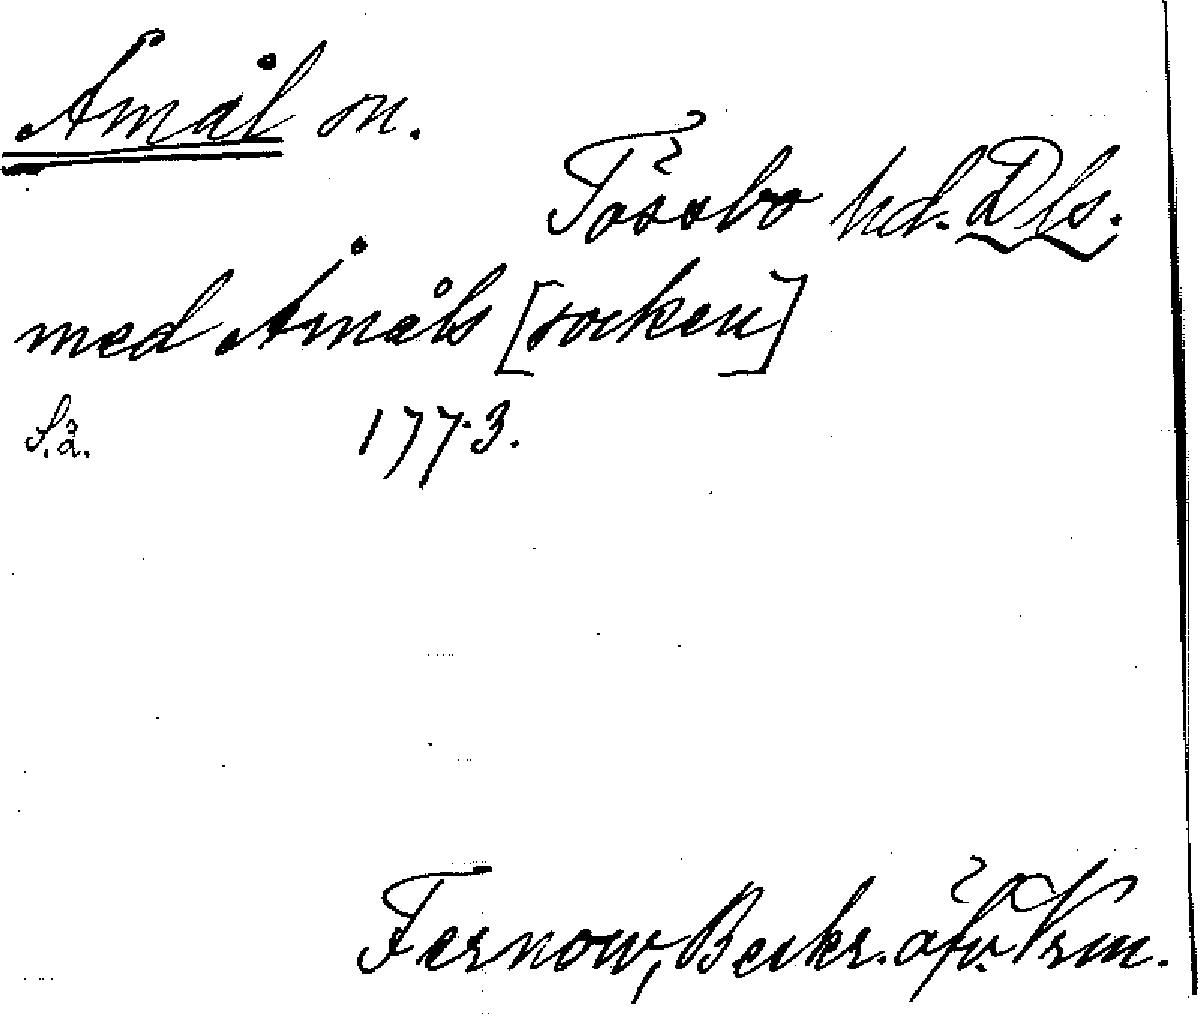 Åmål sn.
Tössbo hd. Dls.
med Åmåls [socken]
S.ä. 1773.
Fernow, Beskr. öfv. Vrm.